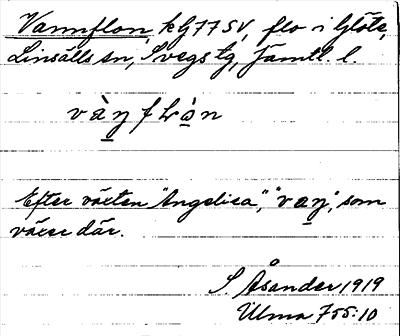 Vannflon, k G 77 SV, flo i Glöte,
Linsälls sn, Svegs tg, Jämtl. l.
vàŋflo̱n
Efter växten "Angelica", "vaŋ", som
växer där.
S Åsander 1919
Ulma 755:10